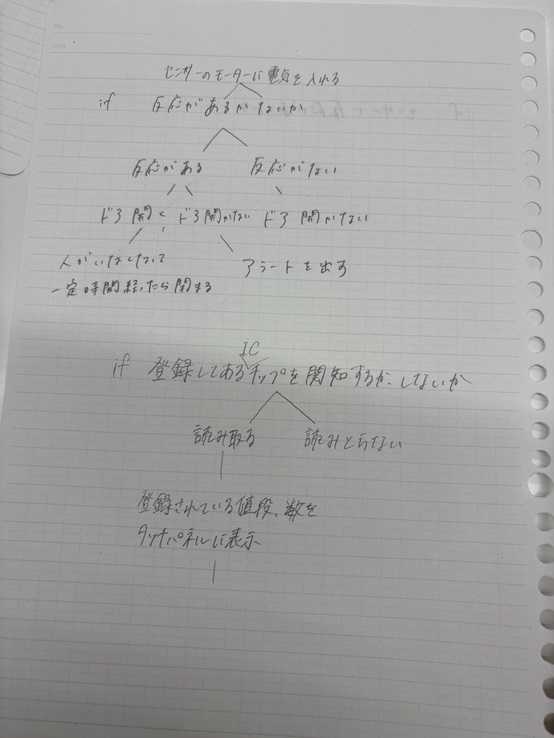 センサーのモーターに電気を入れる
if 反応があるかないか
反応がある 反応がない
ドア開く ドア開かない ドア開かない
人がいなくなって
一定時間経ったら閉まる
アラートを出す
IC
if 登録してあるチップを関知するか、しないか
読み取る 読みとらない
登録されている値段、数を
タッチパネルに表示